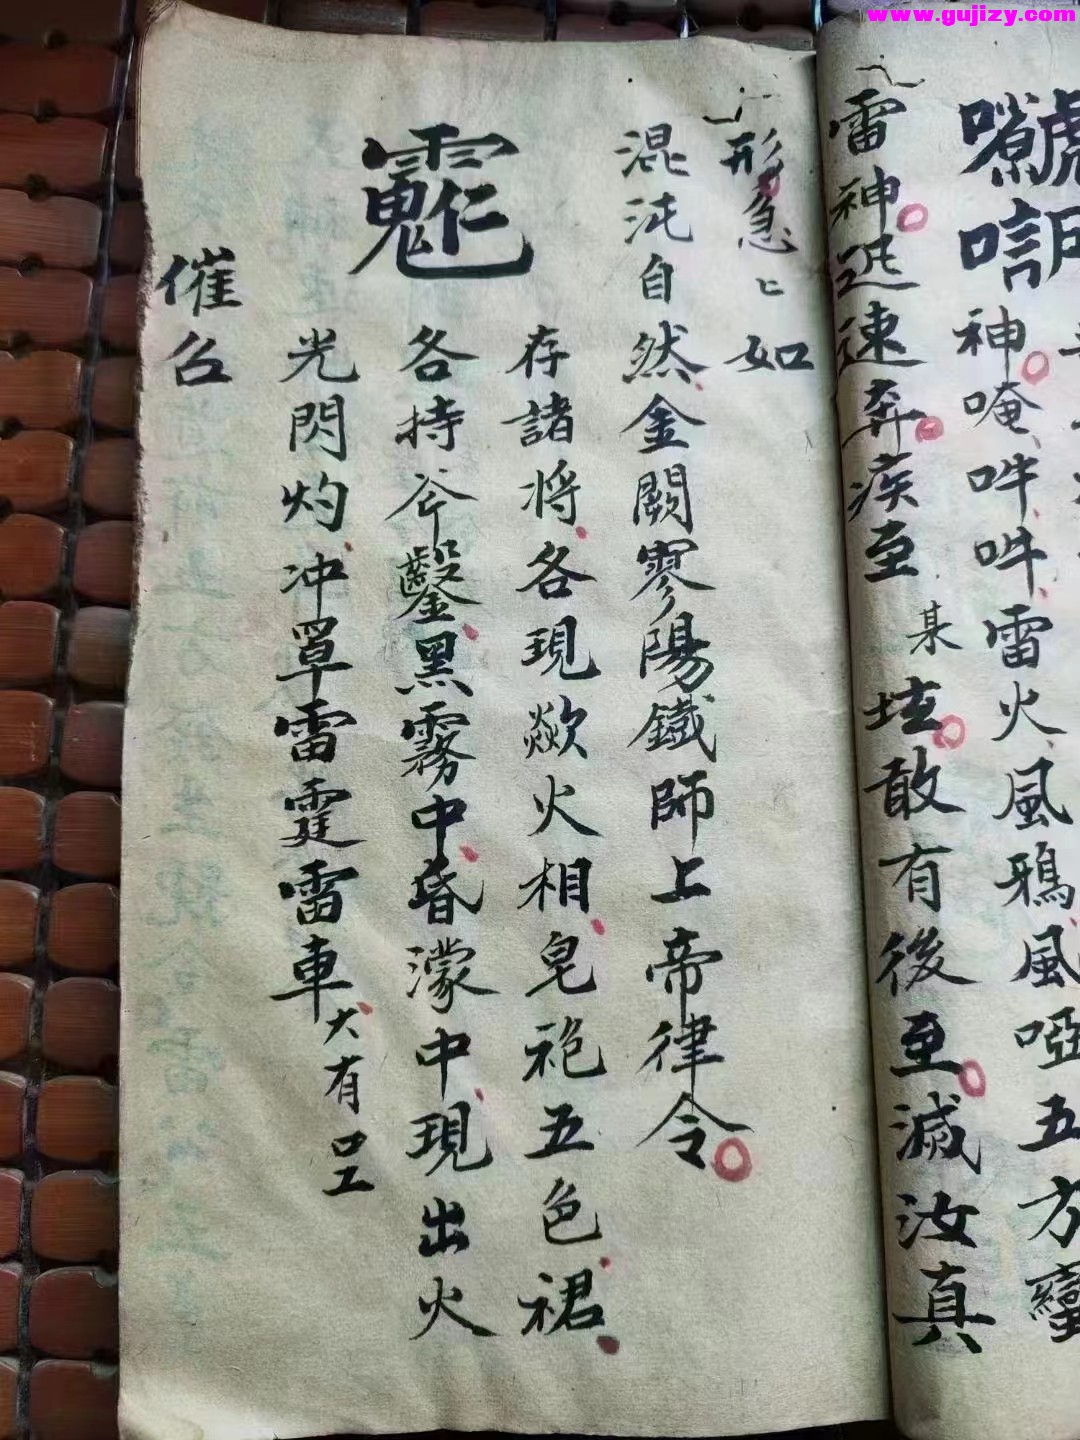 www.gujizy.com
神唵吽吽雷火風鴉風啞五方蠻
雷神迅速奔疾至某垓敢有後至滅汝真
形急〻如
混沌自然金闕寥陽鐵師上帝律令
存諸將各現歘火相皂袍五色裙
各持斧鑿黑霧中昏濛中現出火
光閃灼冲罩雷霆雷車大有呈
催召